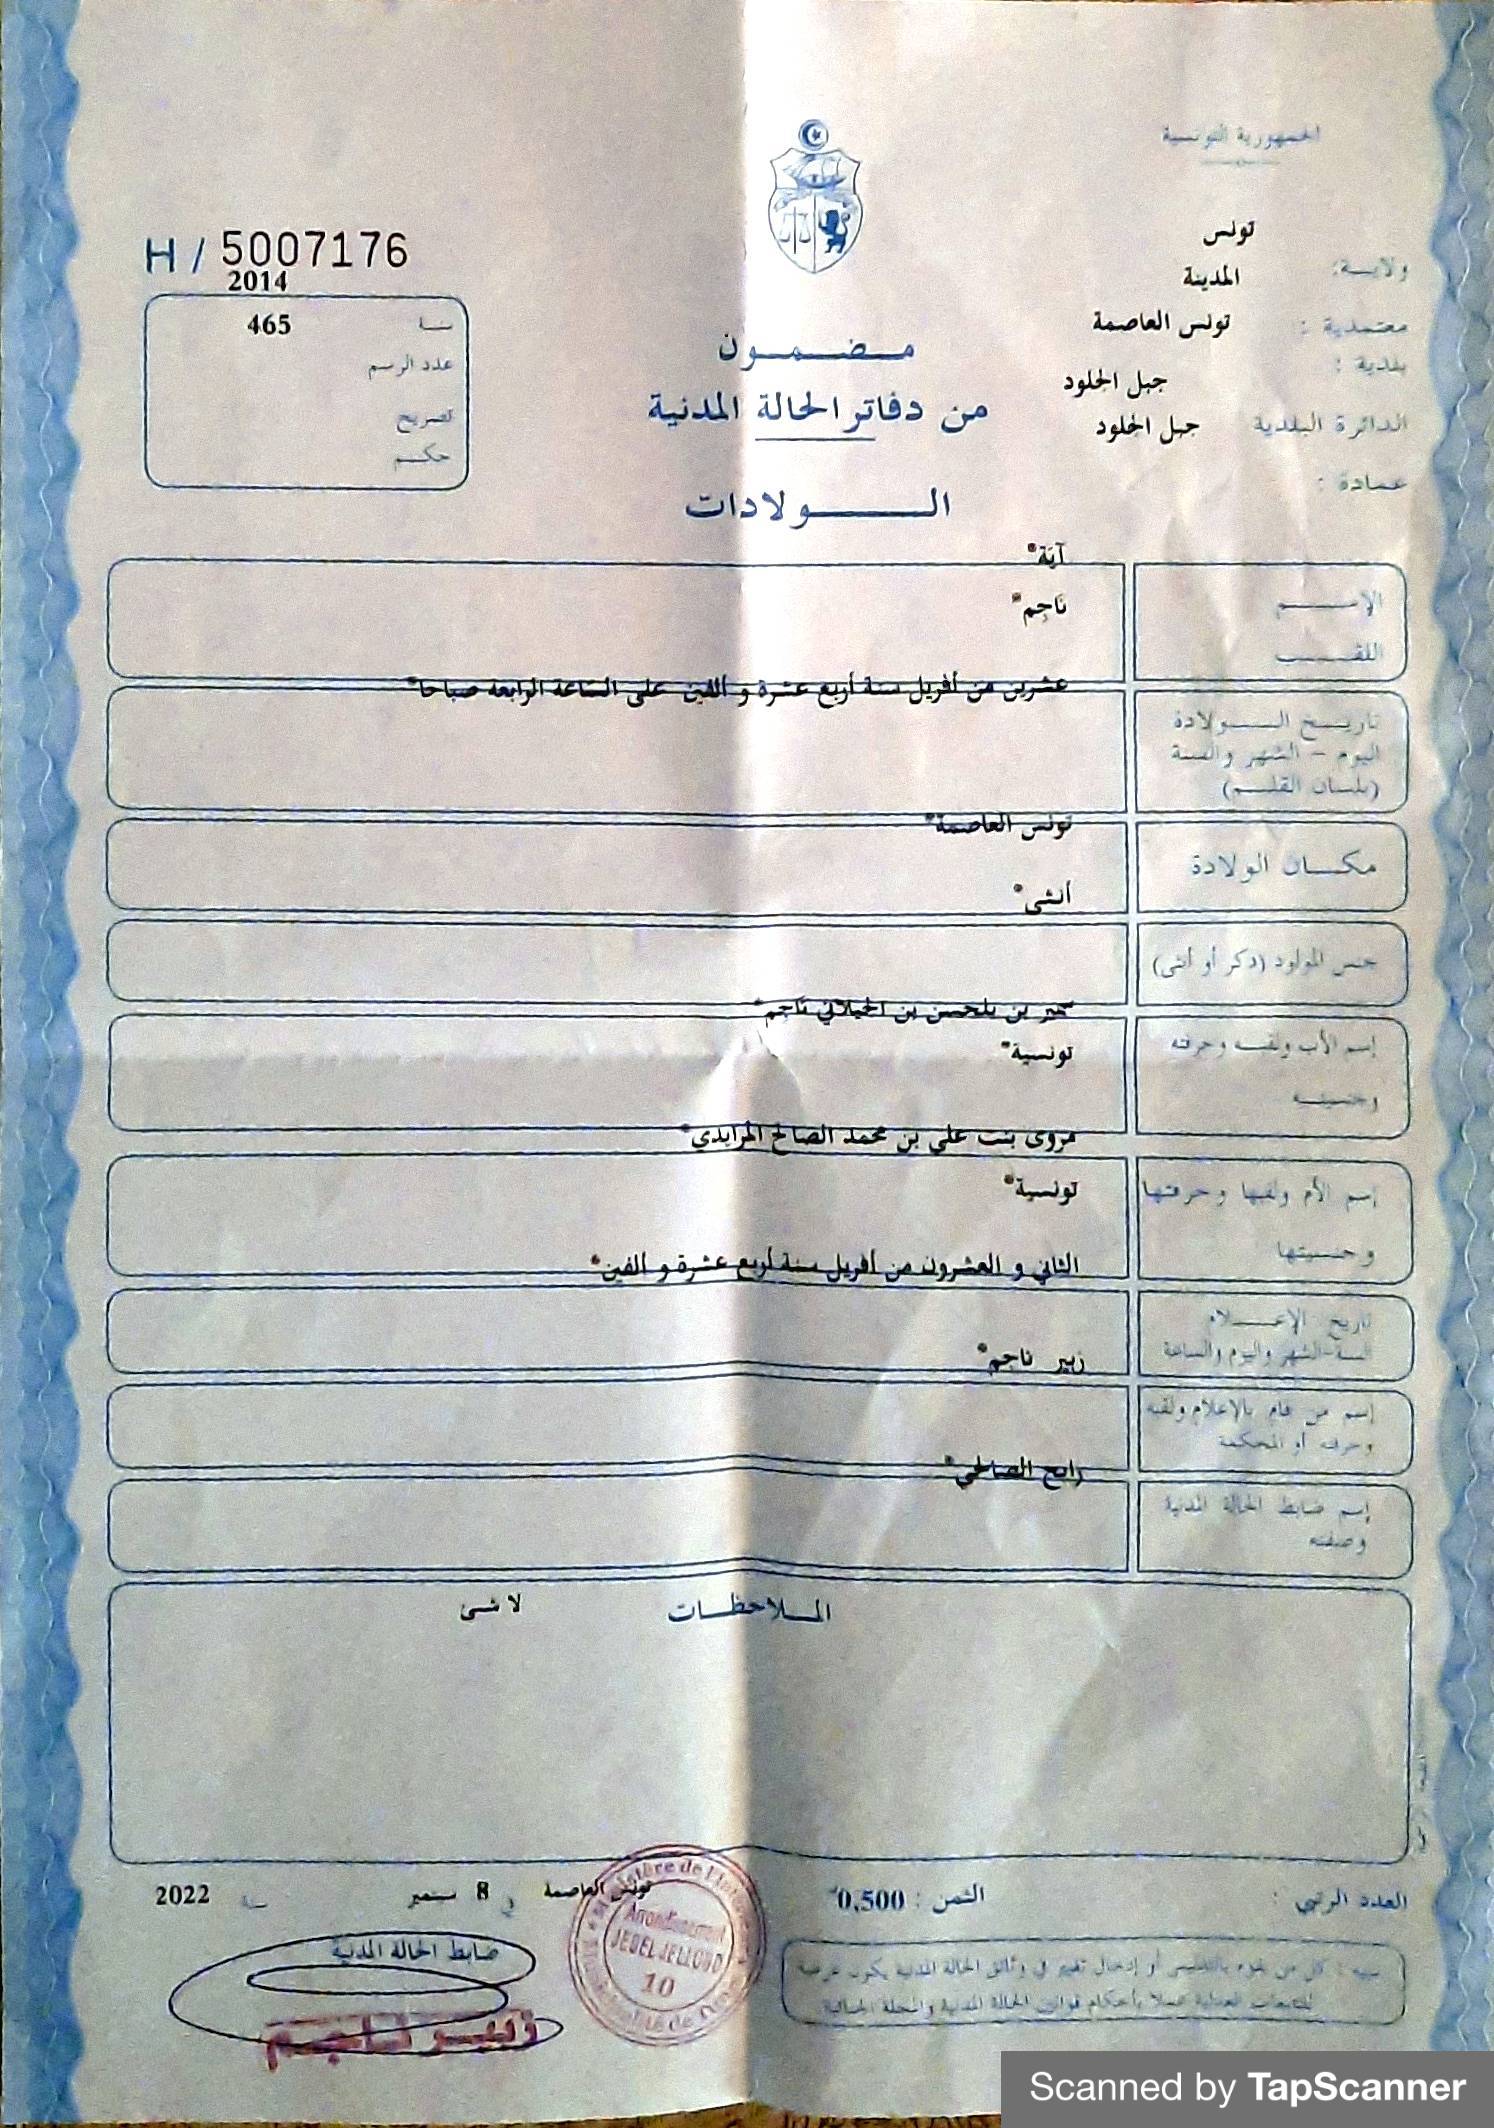 الجمهورية التونسية
ولاية:
تونس
معتمدية :
المدينة
بلدية :
تونس العاصمة
الدائرة البلدية
جبل الجلود
عمادة :
جبل الجلود
H / 5007176
2014
سنة
465
عدد الرسم
لتصريح
حكم
مضمون
من دفاتر الحالة المدنية
الولادات
الإسم
آية*
اللقب
ناجم*
تاريخ الولادة
اليوم - الشهر والسنة
(بلسان القلم)
عشرين من أفريل سنة أربع عشرة و ألفين على الساعة الرابعة صباحا*
مكان الولادة
تونس العاصمة*
جنس المولود (ذكر أو أنثى)
أنثى*
إسم الأب ولقبه وحرفته
وجنسيته
سمير بن بلحسن بن الجيلاني ناجم*
تونسية*
إسم الأم ولقبها وحرفتها
وجنسيتها
مروى بنت علي بن محمد الصالح المرايدي*
تونسية*
تاريخ الإعلام
السنة-الشهر واليوم والساعة
الثاني و العشرون من أفريل سنة أربع عشرة و ألفين*
إسم من قام بالإعلام ولقبه
وحرفته أو المحكمة
زبير ناجم*
إسم ضابط الحالة المدنية
وصفته
رابح الصالحي*
الملاحظات
لا شئ
العدد الرتبي :
الثمن : 0,500
تونس العاصمة في 8 سبتمبر سنة 2022
ضابط الحالة المدنية
زبير ناجم
Ministère de l'Intérieur
Arrondissement
JEBEL JELLOUD
10
تنبيه : كل من يقوم بالتدليس أو إدخال تغيير في وثائق الحالة المدنية يكون عرضة
للتتبعات العدلية عملا بأحكام قوانين الحالة المدنية والمجلة الجنائية
Scanned by TapScanner